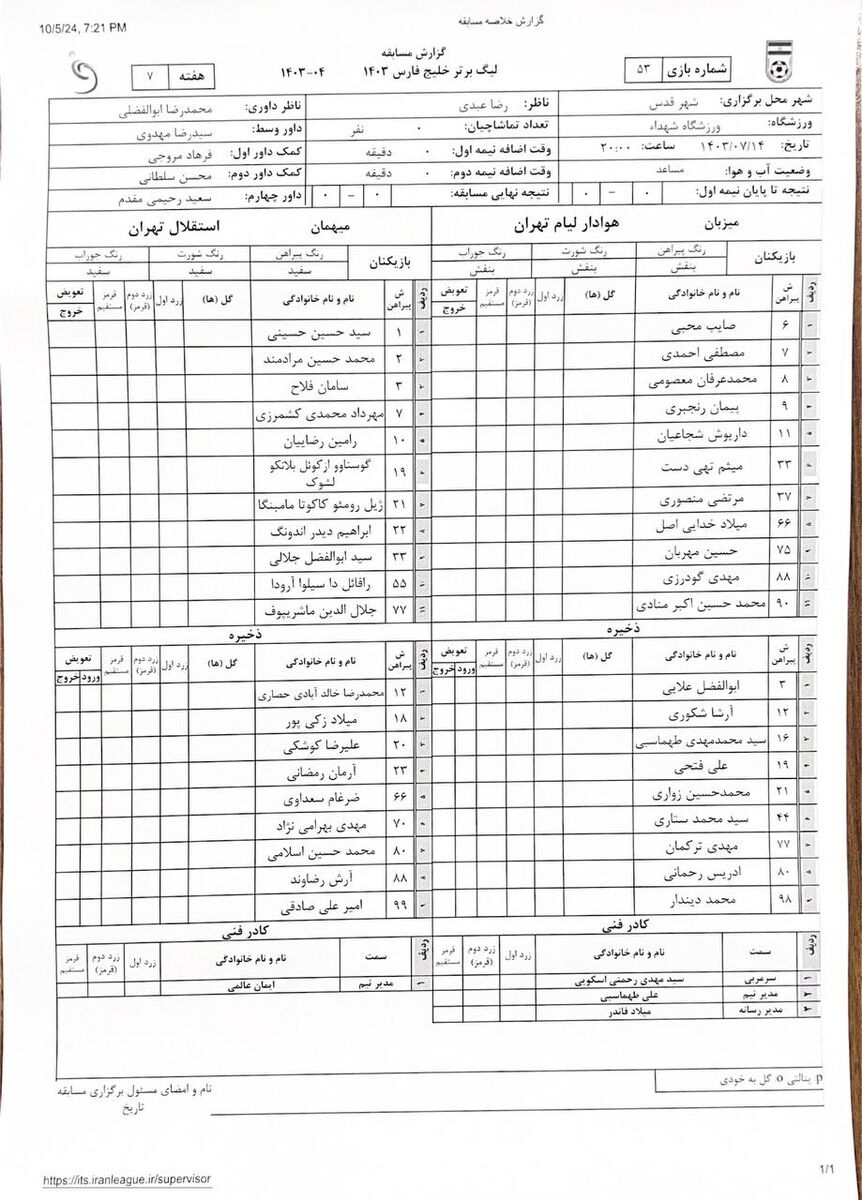 10/5/24, 7:21 PM
گزارش خلاصه مسابقه
گزارش مسابقه
شماره بازی ۵۳
لیگ برتر خلیج فارس ۱۴۰۳ ۱۴۰۳-۰۴
هفته ۷
شهر محل برگزاری: شهر قدس
ناظر: رضا عبدی
ناظر داوری: محمدرضا ابوالفضلی
ورزشگاه: ورزشگاه شهداء
تعداد تماشاچیان: ۰ نفر
داور وسط: سیدرضا مهدوی
تاریخ: ۱۴۰۳/۰۷/۱۴ ساعت: ۲۰:۰۰
وقت اضافه نیمه اول: ۰ دقیقه
کمک داور اول: فرهاد مروجی
وضعیت آب و هوا: مساعد
وقت اضافه نیمه دوم: ۰ دقیقه
کمک داور دوم: محسن سلطانی
نتیجه تا پایان نیمه اول: ۰ – ۰
نتیجه نهایی مسابقه: ۰ – ۰
داور چهارم: سعید رحیمی مقدم
میزبان هوادار لیام تهران
بازیکنان
رنگ پیراهن رنگ شورت رنگ جوراب
بنفش بنفش بنفش
ردیف ش پیراهن نام و نام خانوادگی گل (ها) زرد اول زرد دوم (قرمز) قرمز مستقیم تعویض خروج
۱ ۶ صایب محبی
۲ ۷ مصطفی احمدی
۳ ۸ محمدعرفان معصومی
۴ ۹ پیمان رنجبری
۵ ۱۱ داریوش شجاعیان
۶ ۳۳ میثم تهی دست
۷ ۳۷ مرتضی منصوری
۸ ۶۶ میلاد خدایی اصل
۹ ۷۵ حسین مهربان
۱۰ ۸۸ مهدی گودرزی
۱۱ ۹۰ محمد حسین اکبر منادی
ذخیره
ردیف ش پیراهن نام و نام خانوادگی گل (ها) زرد اول زرد دوم (قرمز) قرمز مستقیم تعویض ورود خروج
۱ ۳ ابوالفضل علایی
۲ ۱۲ آرشا شکوری
۳ ۱۶ سید محمدمهدی طهماسبی
۴ ۱۹ علی فتحی
۵ ۲۱ محمدحسین زواری
۶ ۴۴ سید محمد ستاری
۷ ۷۷ مهدی ترکمان
۸ ۸۰ ادریس رحمانی
۹ ۹۸ محمد دیندار
کادر فنی
ردیف سمت نام و نام خانوادگی زرد اول زرد دوم (قرمز) قرمز مستقیم
۱ سرمربی سید مهدی رحمتی اسکویی
۲ مدیر تیم علی طهماسبی
۳ مدیر رسانه میلاد قاندر
میهمان استقلال تهران
بازیکنان
رنگ پیراهن رنگ شورت رنگ جوراب
سفید سفید سفید
ردیف ش پیراهن نام و نام خانوادگی گل (ها) زرد اول زرد دوم (قرمز) قرمز مستقیم تعویض خروج
۱ ۱ سید حسین حسینی
۲ ۲ محمد حسین مرادمند
۳ ۳ سامان فلاح
۴ ۷ مهرداد محمدی کشمرزی
۵ ۱۰ رامین رضاییان
۶ ۱۹ گوستاوو ازکوئل بلانکو لشوک
۷ ۲۱ ژیل رومئو کاکوتا مامبنگا
۸ ۲۲ ابراهیم دیدر اندونگ
۹ ۳۳ سید ابوالفضل جلالی
۱۰ ۵۵ رافائل دا سیلوا آرودا
۱۱ ۷۷ جلال الدین ماشریپوف
ذخیره
ردیف ش پیراهن نام و نام خانوادگی گل (ها) زرد اول زرد دوم (قرمز) قرمز مستقیم تعویض ورود خروج
۱ ۱۲ محمدرضا خالد آبادی حصاری
۲ ۱۸ میلاد زکی پور
۳ ۲۰ علیرضا کوشکی
۴ ۲۳ آرمان رمضانی
۵ ۶۶ ضرغام سعداوی
۶ ۷۰ مهدی بهرامی نژاد
۷ ۸۰ محمد حسین اسلامی
۸ ۸۸ آرش رضاوند
۹ ۹۹ امیر علی صادقی
کادر فنی
ردیف سمت نام و نام خانوادگی زرد اول زرد دوم (قرمز) قرمز مستقیم
۱ مدیر تیم ایمان عالمی
p پنالتی o گل به خودی
نام و امضای مسئول برگزاری مسابقه
تاریخ
https://its.iranleague.ir/supervisor
1/1